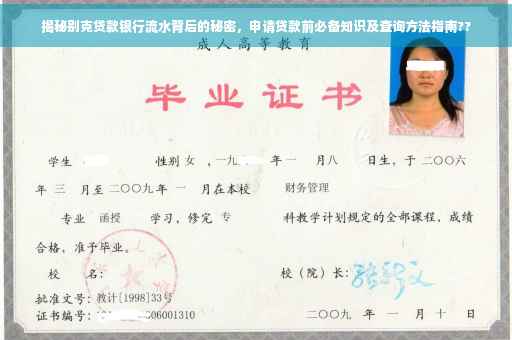 揭秘别克贷款银行流水背后的秘密，申请贷款前必备知识及查询方法指南??
成人高等教育
毕业证书
学生 性别 女 ，一九 年一 月八 日生，于 二〇〇六
年 三 月至 二〇〇九 年 一 月在本校 财务管理
专业 函授 学习，修完 专 科教学计划规定的全部课程，成绩
合格，准予毕业。
校 名： 校（院）长：
批准文号：教计[1998]33号
证书编号： 606001310 二〇〇九 年 一 月 十 日